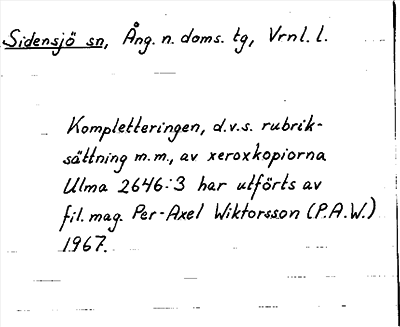 Sidensjö sn, Ång. n. doms. tg, Vrnl. l.
Kompletteringen, d.v.s. rubrik-
sättning m.m., av xeroxkopiorna
Ulma 2646:3 har utförts av
fil. mag. Per-Axel Wiktorsson (P.A.W.)
1967.